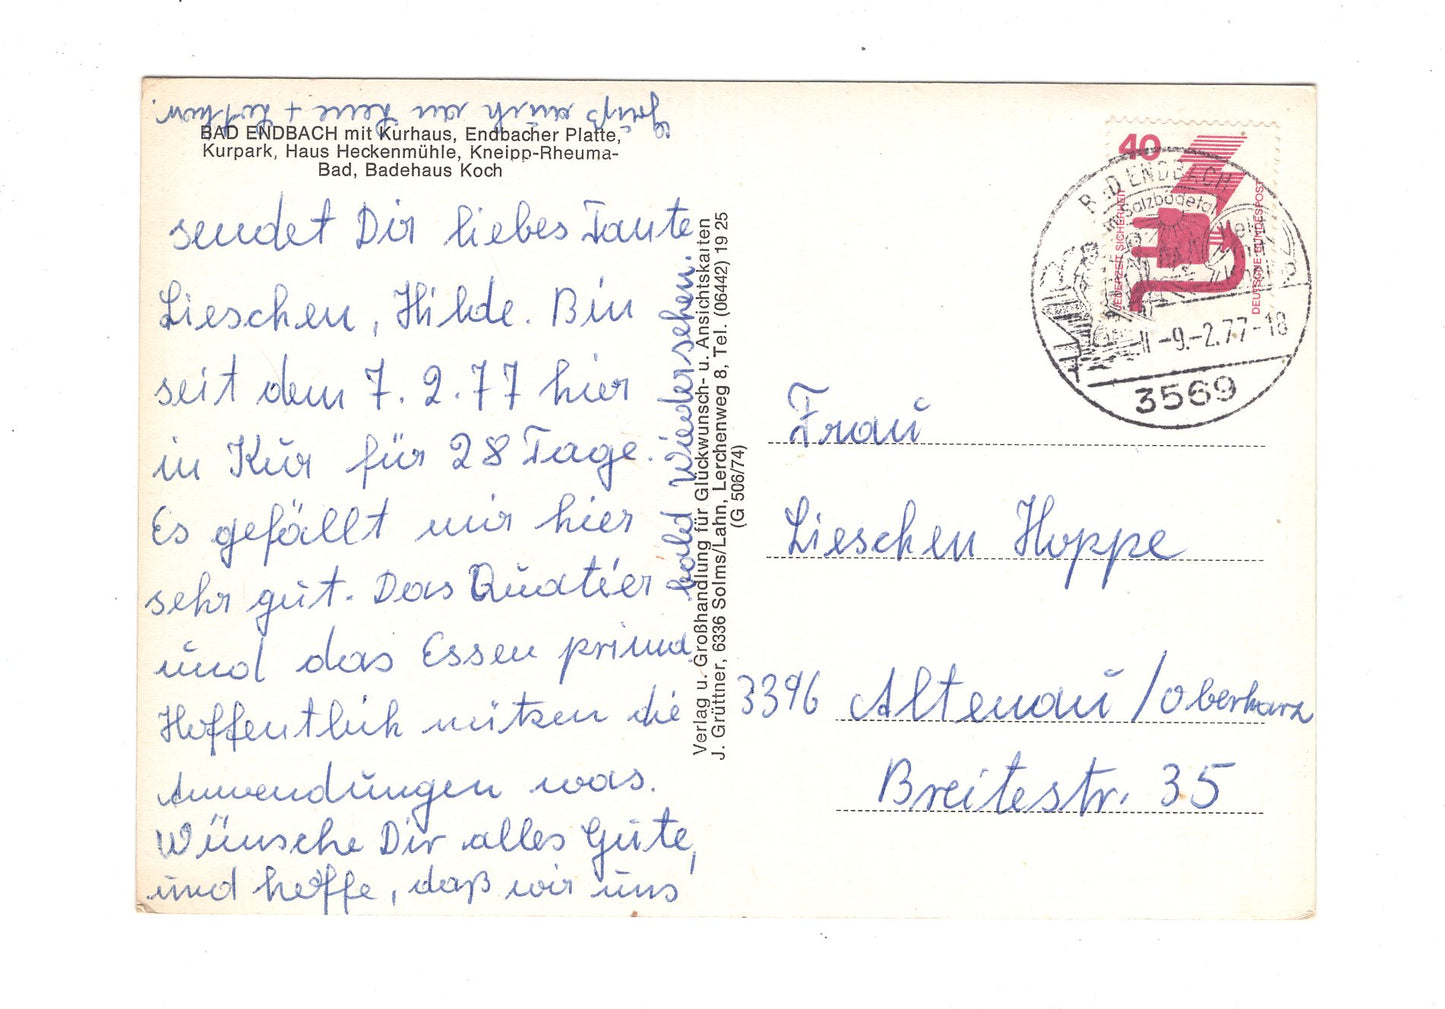 BAD ENDBACH mit Kurhaus, Endbacher Platte,
Kurpark, Haus Heckenmühle, Kneipp-Rheuma-
Bad, Badehaus Koch
sendet Dir liebes Tante
Lieschen, Hilde. Bin
seit dem 7.2.77 hier
in Kur für 28 Tage.
Es gefällt mir hier
sehr gut. Das Quatier
und das Essen prima
Hoffentlich nützen die
Anwendungen was.
Wünsche Dir alles Gute,
und hoffe, daß wir uns
bald wiedersehen.
Gruß auch an Lene +
Verlag u. Großhandlung für Glückwunsch- u. Ansichtskarten
J. Grüttner, 6336 Solms/Lahn, Lerchenweg 8, Tel. (06442) 19 25
(G 506/74)
40
JEDERZEIT SICHERHEIT
DEUTSCHE BUNDESPOST
BAD ENDBACH
Salzbödetal
-9.-2.77-18
3569
Frau
Lieschen Hoppe
3396 Altenau/Oberharz
Breitestr. 35